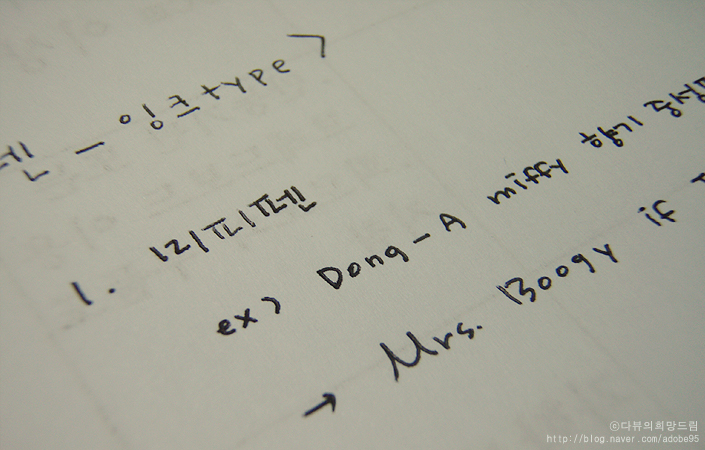 - 잉크type>
1. 미피펜
ex) Dong-A miffy 향기 중성
→ Mrs. Boogy if
ⓒ다뷰의희망드림
http://blog.naver.com/adobe95